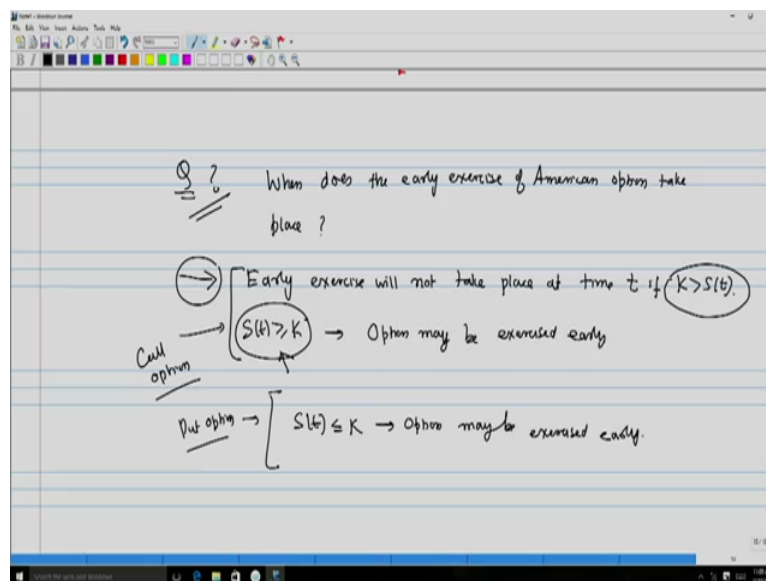 Note1 - Windows Journal
File Edit View Insert Actions Tools Help
B I
Q ? When does the early exercise of American option take
place ?
→ Early exercise will not take place at time t if K > S(t).
S(t) ≥ K → Option may be exercised early
Call
option
Put option → S(t) ≤ K → Option may be exercised early.
Search the web and Windows